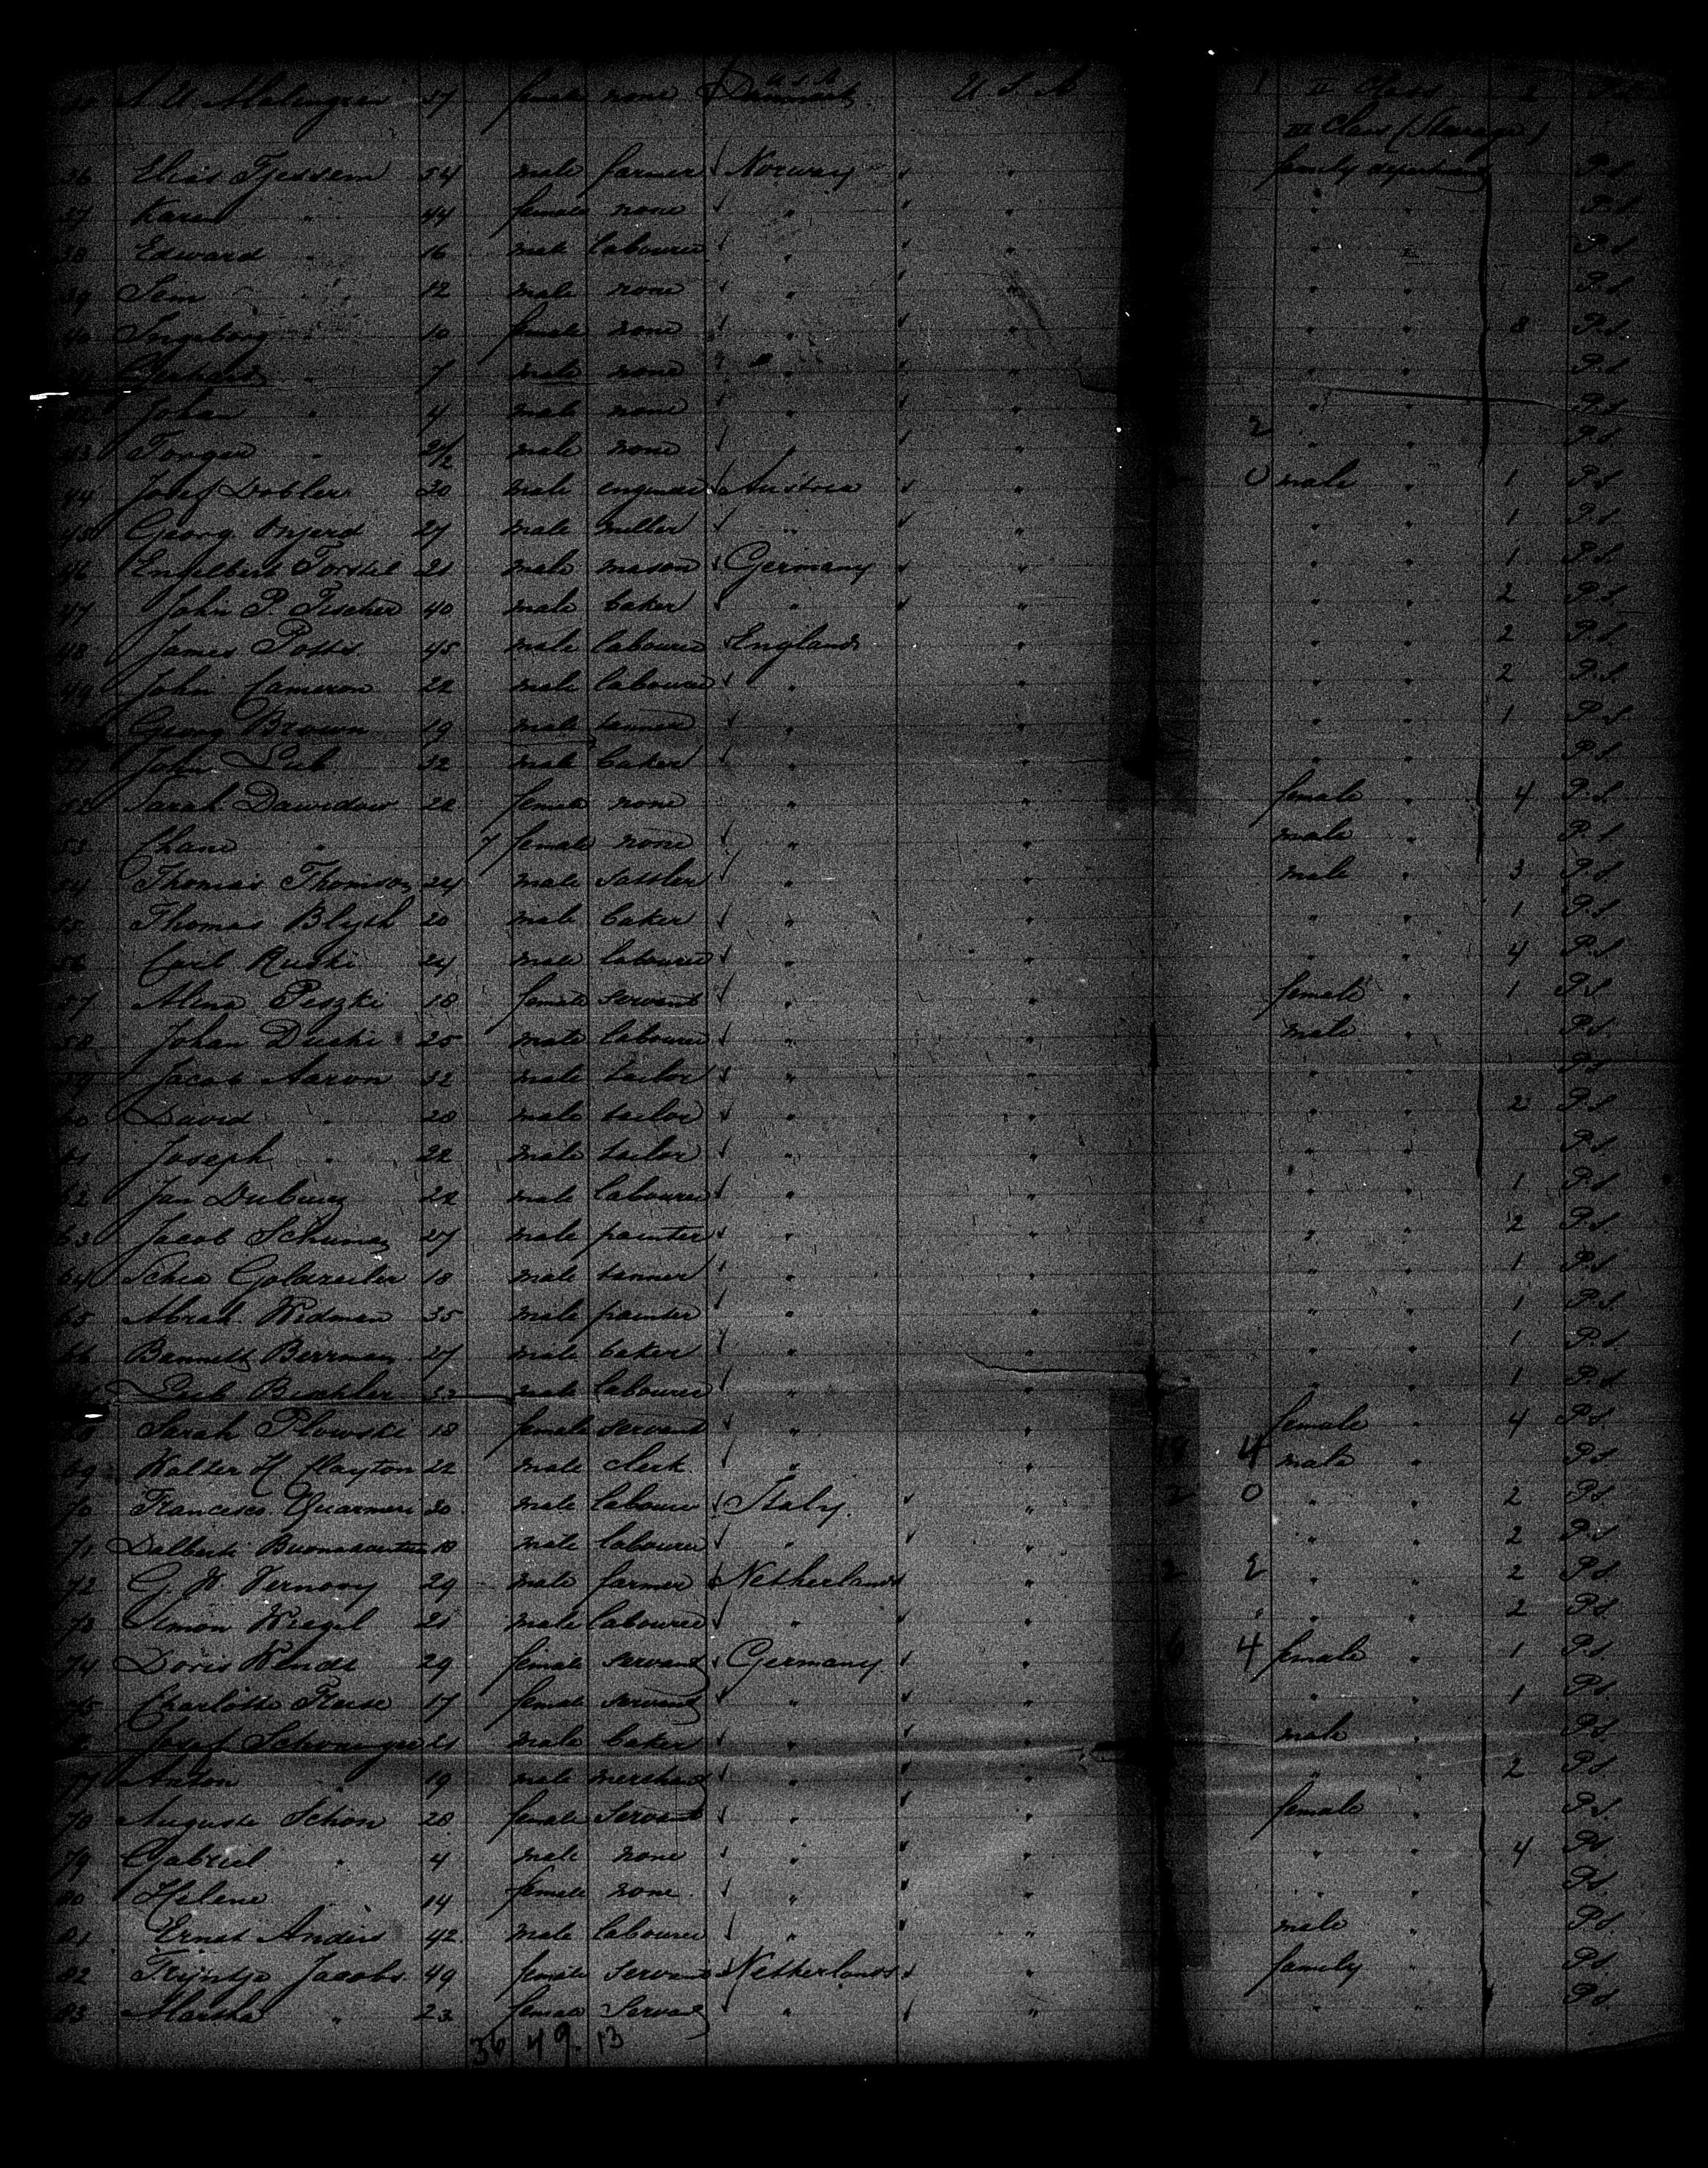 37 female none Denmark U.S.A. U S A 1 II Class
III Class (Steerage)
36 Elias Tjessem 54 male farmer Norway " family P.S.
37 Karen " 44 female none " " " " P.S.
38 Edward " 16 male labourer " " " " P.S.
39 " 12 male none " " " " P.S.
40 Ingeborg " 10 female none " " " " 8 P.S.
" 7 male none " " " " P.S.
42 Johan " 4 male none " " " " P.S.
43 " 2½ male none " " 2 " " P.S.
44 Josef Dobler 20 male Austria " 0 male " 1 P.S.
45 Georg 27 male miller " " " " 1 P.S.
46 Engelbert 21 male mason Germany " " " 1 P.S.
47 John P. Fischer 40 male baker " " " " 2 P.S.
48 James Potts 45 male labourer England " " " 2 P.S.
49 John Cameron 22 male labourer " " " " 2 P.S.
Georg Brown 19 male tanner " " " " 1 P.S.
51 John 32 male baker " " " " P.S.
52 Sarah Dawidow 20 female none " " female " 4 P.S.
53 Chane " 7 female none " " male " P.S.
54 Thomas Thomson 24 male sattler " " male " 3 P.S.
55 Thomas Blyth 20 male baker " " " " 1 P.S.
56 Carl Ruski 24 male labourer " " " " 4 P.S.
57 Alina Peszki 18 female servant " " female " 1 P.S.
58 Johan Duski 25 male labourer " " male " P.S.
59 Jacob Aaron 32 male tailor " " " " P.S.
60 David " 20 male tailor " " " " 2 P.S.
61 Joseph " 22 male tailor " " " " P.S.
62 Jan 22 male labourer " " " " 1 P.S.
63 Jacob 27 male painter " " " " 2 P.S.
64 18 male tanner " " " " 1 P.S.
65 Abrah. Widman 35 male painter " " " " 1 P.S.
66 Bennett Berrman 27 male baker " " " " 1 P.S.
Leib male labourer " " " " 1 P.S.
68 Sarah Plowski 18 female servant " " female " 4 P.S.
69 Walter H. Clayton 22 male clerk " " 4 male " P.S.
70 Francesco 30 male labourer Italy. " 2 0 " " 2 P.S.
71 Dalberti 18 male labourer " " " " 2 P.S.
72 G. W. Vernooy 29 male farmer Netherlands " 2 " " 2 P.S.
73 Simon 21 male labourer " " " " 2 P.S.
74 Doris Wende 29 female servant Germany " 6 4 female " 1 P.S.
75 Charlotte 17 female servant " " " " 1 P.S.
Josef Schoninger 21 male baker " " male " P.S.
77 Anton " 19 male merchant " " " " 2 P.S.
78 Auguste Schön 28 female servant " " female " P.S.
79 Gabriel " 4 male none " " " " 4 P.S.
80 Helene " 14 female none " " " " P.S.
81 Ernst Anders 42 male labourer " " male " P.S.
82 Trijntje Jacobs 49 female servant Netherlands " family " P.S.
83 Martha " 23 female servant " " " " P.S.
36 49. 13